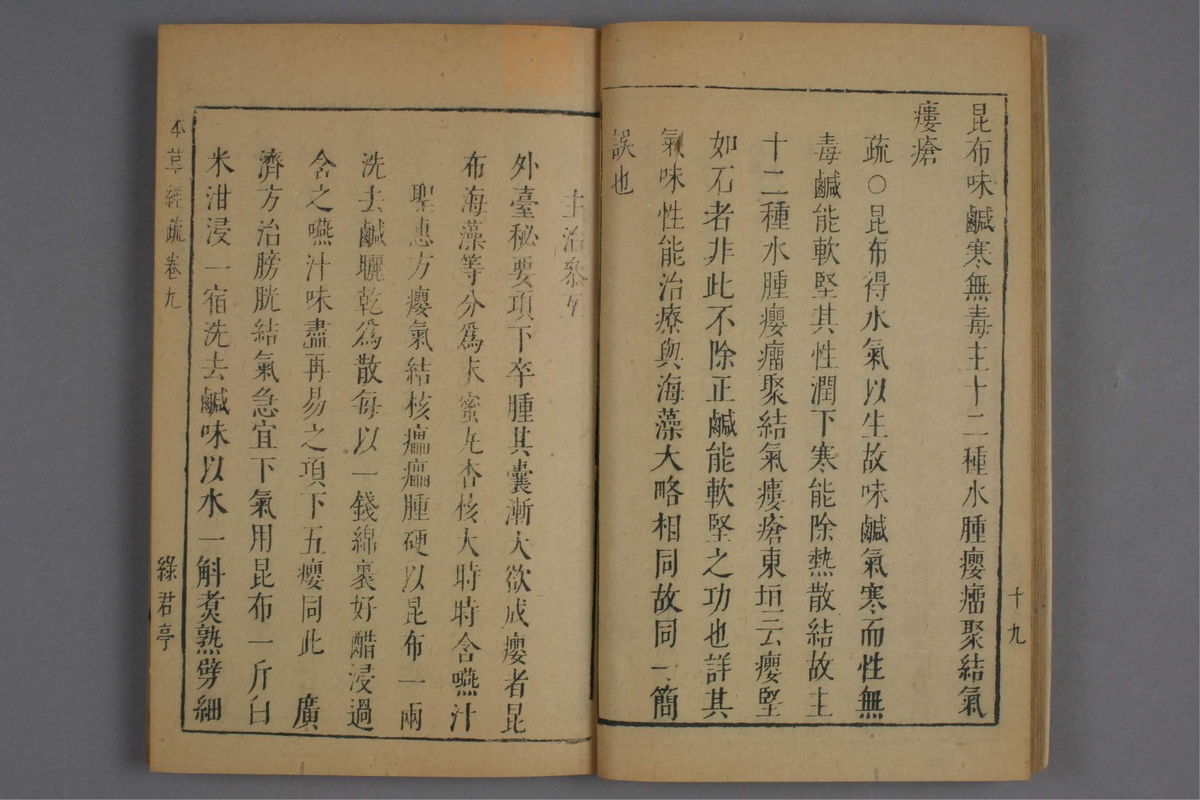 昆布味鹹寒無毒主十二種水腫癭瘤聚結氣
瘻瘡
疏○昆布得水氣以生故味鹹氣寒而性無
毒鹹能軟堅其性潤下寒能除熱散結故主
十二種水腫癭瘤聚結氣瘻瘡東垣云癭堅
如石者非此不除正鹹能軟堅之功也詳其
氣味性能治療與海藻大略相同故同一簡
誤也
十九
主治參互
外臺秘要項下卒腫其囊漸大欲成癭者昆
布海藻等分爲末蜜丸杏核大時時含嚥汁
聖惠方癭氣結核㿈㿈腫硬以昆布一兩
洗去鹹曬乾爲散每以一錢綿裹好醋浸過
含之嚥汁味盡再易之項下五癭同此　廣
濟方治膀胱結氣急宜下氣用昆布一斤白
米泔浸一宿洗去鹹味以水一斛煑熟劈細
本草經疏卷九
綠君亭